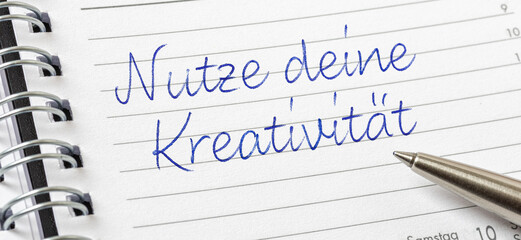 9
Nutze deine
10
Kreativität
Samstag 10